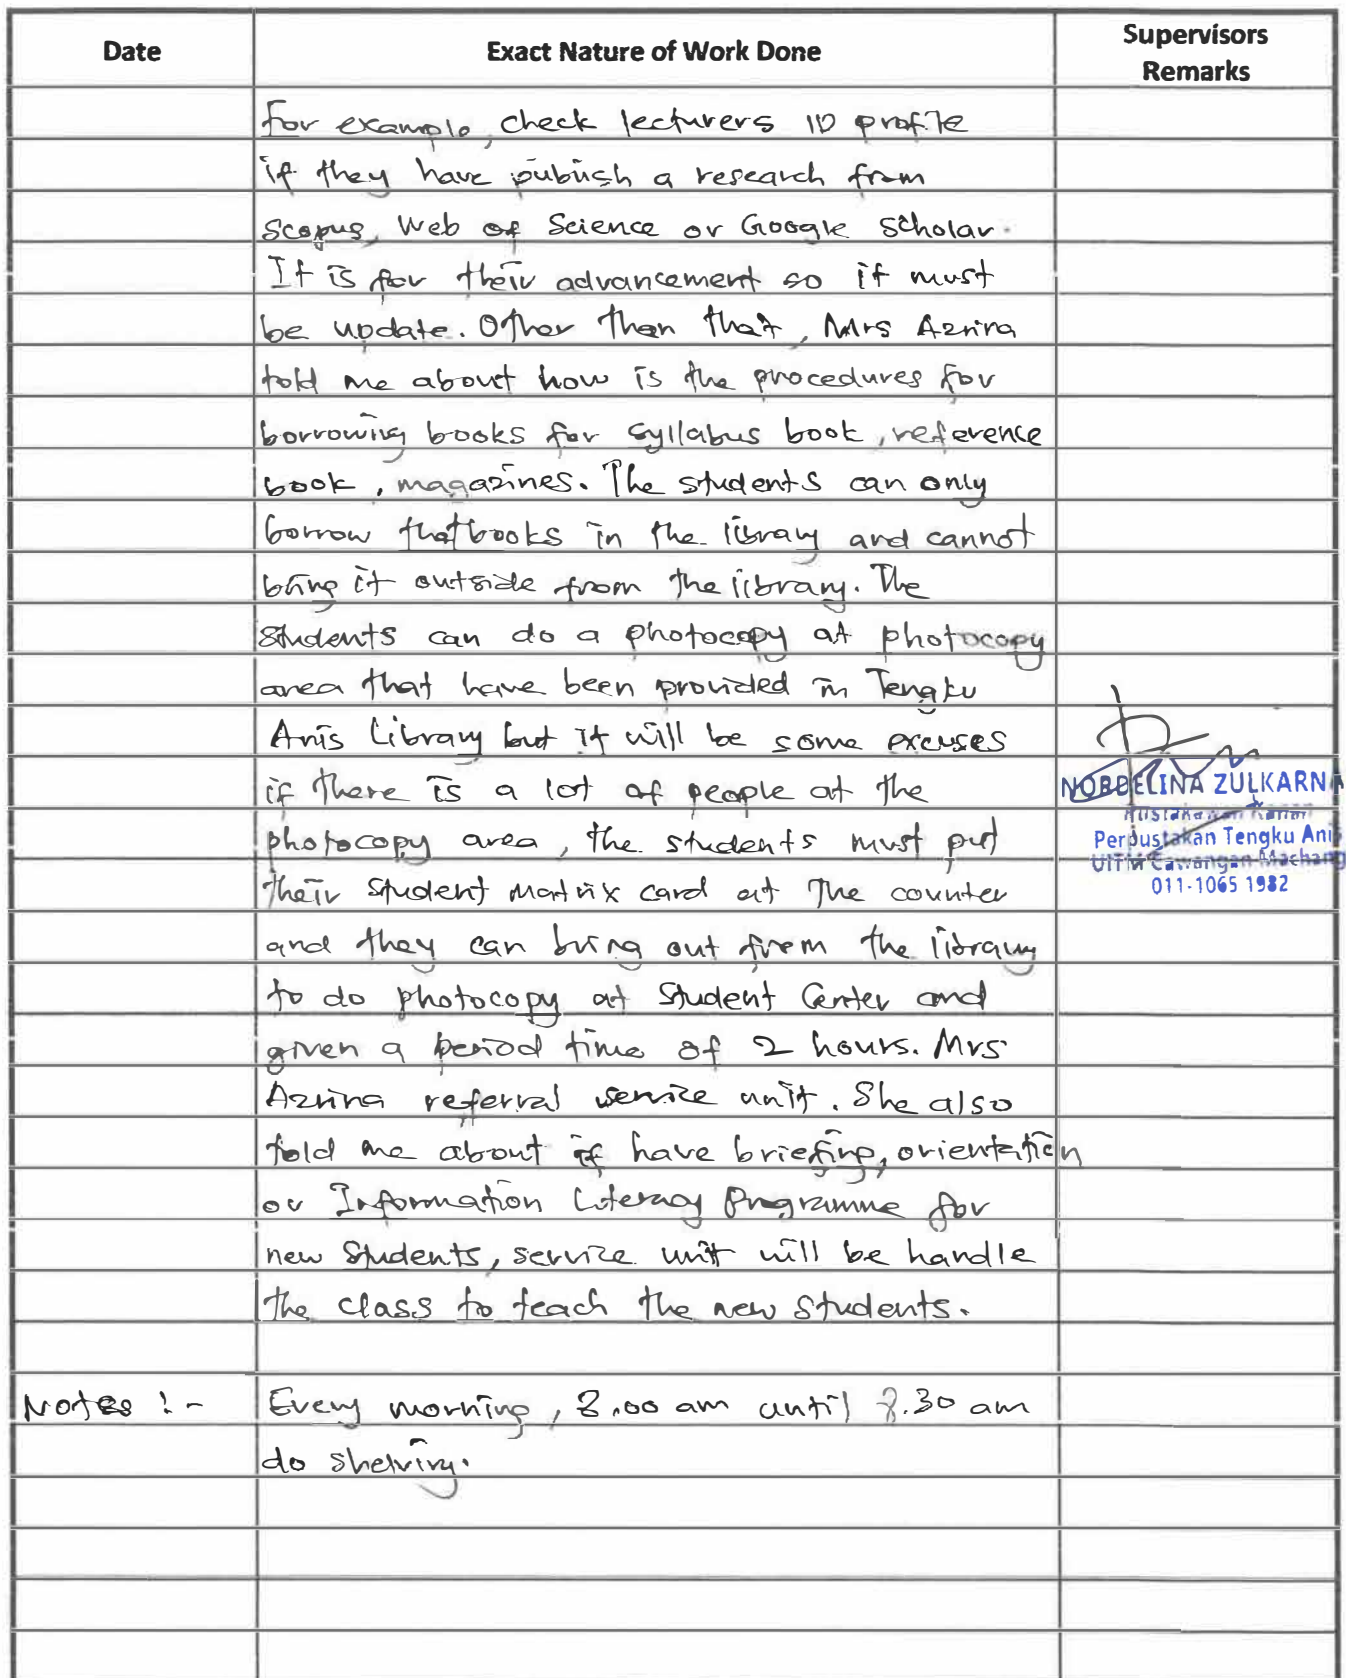 Date Exact Nature of Work Done Supervisors Remarks
For example, check lecturers ID profile
if they have publish a research from
Scopus, Web of Science or Google Scholar.
It is for their advancement so it must
be update. Other than that, Mrs Azrina
told me about how is the procedures for
borrowing books for syllabus book, reference
book, magazines. The students can only
borrow that books in the library and cannot
bring it outside from the library. The
students can do a photocopy at photocopy
area that have been provided in Tengku
Anis Library but it will be some excuses
if there is a lot of people at the
photocopy area, the students must put
their student matrix card at the counter
and they can bring out from the library
to do photocopy at Student Center and
given a period time of 2 hours. Mrs
Azrina referral service unit. She also
told me about if have briefing, orientation
or Information Literacy Programme for
new students, service unit will be handle
the class to teach the new students.
NORDELINA ZULKARNA
Perpustakan Tengku Anis
UiTM Cawangan Machang
011-1065 1982
Notes :- Every morning, 8.00 am until 8.30 am
do shelving.